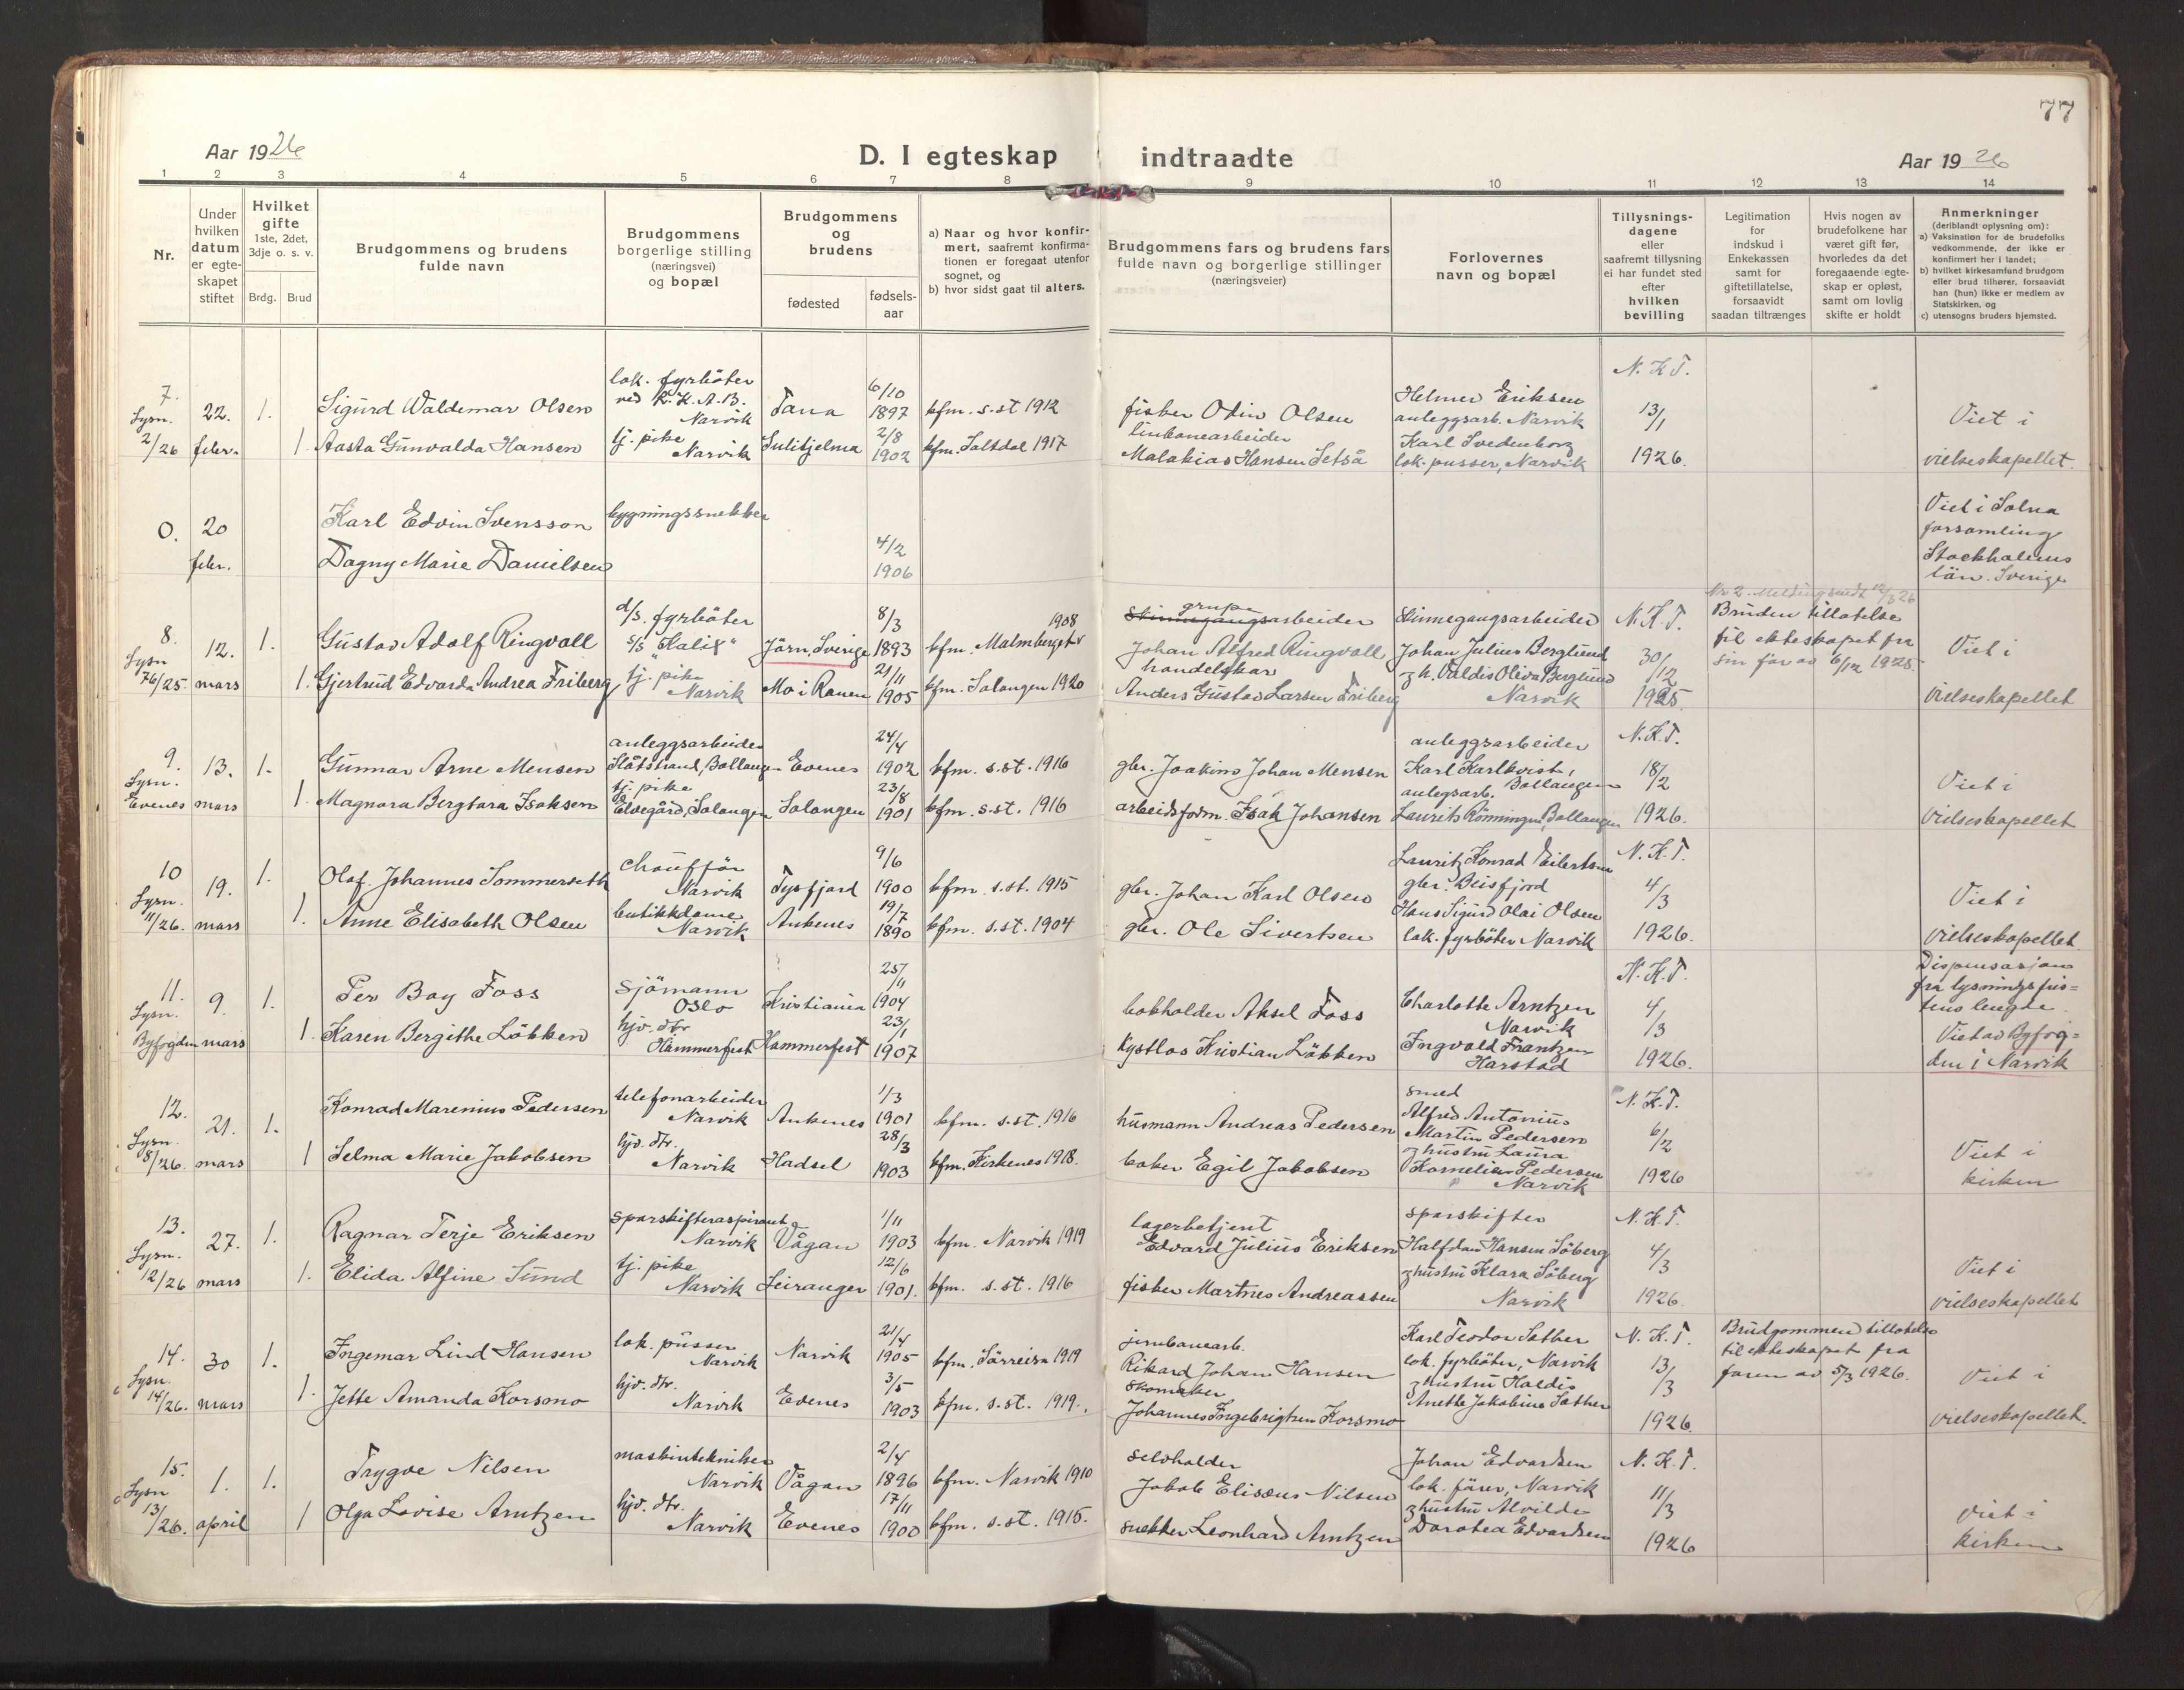 77
Aar 1926
D. I egteskap indtraadte
Aar 1926
1 2 3 4 5 6 7 8 9 10 11 12 13 14
Nr.
Under hvilken datum er egte-skapet stiftet
Hvilket gifte 1ste, 2det, 3dje o. s. v.
Brdg. Brud
Brudgommens og brudens fulde navn
Brudgommens borgerlige stilling (næringsvei) og bopæl
Brudgommens og brudens
fødested
fødsels-aar
a) Naar og hvor konfir-mert, saafremt konfirma-tionen er foregaat utenfor sognet, og
b) hvor sidst gaat til alters.
Brudgommens fars og brudens fars fulde navn og borgerlige stillinger (næringsveier)
Forlovernes navn og bopæl
Tillysnings-dagene eller saafremt tillysning ei har fundet sted efter hvilken bevilling
Legitimation for indskud i Enkekassen samt for giftetillatelse, forsaavidt saadan tiltrænges
Hvis nogen av brudefolkene har været gift før, hvorledes da det foregaaende egte-skap er opløst, samt om lovlig skifte er holdt
Anmerkninger (deriblandt oplysning om):
a) Vaksination for de brudefolks vedkommende, der ikke er konfirmert her i landet;
b) hvilket kirkesamfund brudgom eller brud tilhører, forsaavidt han (hun) ikke er medlem av Statskirken, og
c) utensogns bruders hjemsted.
7. Lysn. 2/26
22. febr.
1.
Sigurd Waldemar Olsen
lok. fyrböter ved K. K. A.B. Narvik
Tana
6/10 1897
kfm. s.st 1912
fisker Odin Olsen
Helmer Eriksen anleggsarb. Narvik
N. K T.
13/1 1926.
1
Aasta Gunvalda Hansen
tj. pike Narvik
Sulitjelma
2/8 1902
kfm. Saltdal 1917
linbanearbeider
Malakias Hansen Setså
Karl Svedenborg lok. pusser, Narvik
Viet i vielseskapellet.
0.
20 febr.
Karl Edvin Svensson
bygningssnekker
Dagny Marie Danielsen
4/2 1906
Viet i Solna
forsamling
Stockholms
län. Sverige
Nr 2. Melding sendt 12/3 26
8. Lysn 76/25.
12. mars
1.
Gustav Adolf Ringvall
d/s. fyrböter s/s "Kalix"
Jörn, Sverige
8/3 1893
kfm. Malmberget 1908
grupe
Skinnegangsarbeider
Johan Alfred Ringvall
Skinnegangsarbeider
Johan Julius Berglund
N. K. T.
30/12 1925.
Bruden tillatelse
til ekteskapet fra
sin far av 6/12 1925.
1.
Gjertrud Edvarda Andrea Friberg
tj. pike Narvik
Mo i Ranen
21/11 1905
kfm. Salangen 1920
handelskar
Anders Gustav Larsen Friberg
g h. Valdis Oliva Berglund
Narvik
Viet i vielseskapellet
9. Lysn. Evenes
13. mars
1.
Gunnar Arne Mensen
anleggsarbeider
Slåtstrand, Ballangen
Evenes
24/4 1902
kfm. s.st. 1916
gbr. Joakim Johan Mensen
anleggsarbeider
Karl Karlkvist,
Ballangen
N. K. T.
18/2 1926.
1.
Magnara Bergtora Isaksen
tj. pike
Elvegård, Salangen
Salangen
23/8 1901
kfm. s.st. 1916
arbeidsform. Isak Johansen
anlegsarb.
Laurits Rönningen, Ballangen
Viet i vielseskapellet
10 Lysn. 11/26.
19. mars
1.
Olaf Johannes Sommerseth
Chauffør Narvik
Tysfjord
9/6 1900
kfm. s.st. 1915
gbr. Johan Karl Olsen
Lauritz Konrad Eilertsen
gbr. Beisfjord
N. K. T.
4/3 1926.
1.
Anne Elisabeth Olsen
butikkdame Narvik
Ankenes
19/7 1890
kfm. s.st. 1904
gbr. Ole Sivertsen
Hans Sigurd Olai Olsen
lok. fyrböter Narvik
Viet i vielseskapellet.
11. Lysn. Byfogden
9. mars
1.
Per Bay Foss
Sjömann Oslo
Kristiania
25/11 1904
bokholder Aksel Foss
Charlotte Arntzen
Narvik
N. K. T.
4/3 1926.
Dispensasjon
fra lysningsfris=
tens lengde.
1.
Karen Bergithe Lökken
hjv. dtr. Hammerfest
Hammerfest
23/1 1907
Kystlos Kristian Lökken
Ingvald Frantzen
Harstad
Viet av Byfog=
den i Narvik
12. Lysn. 8/26.
21. mars
1.
Konrad Marenius Pedersen
telefonarbeider Narvik
Ankenes
1/3 1901
kfm. s.st. 1916
husmann Andreas Pedersen
smed
Alfred Antonius
Martin Pedersen
N. K. T.
6/2 1926
1
Selma Marie Jakobsen
hjv. dtr. Narvik
Hadsel
28/3 1903
kfm. Kirkenes 1918.
baker Egil Jakobsen
g hustru Laura
Kornelia Pedersen
Narvik
Viet i kirken
13. Lysn. 12/26
27. mars
1.
Ragnar Terje Eriksen
Sporskifteraspirant Narvik
Vågan
1/11 1903
kfm. Narvik 1919
lagerbetjent
Edvard Julius Eriksen
sporskifter
Halfdan Hansen Söberg
N. K. T.
4/3 1926.
1.
Elida Alfine Sund
tj. pike Narvik
Leiranger
12/6 1901.
kfm. s.st. 1916
fisker Martnes Andreassen
g hustru Klara Söberg
Narvik
Viet i vielseskapellet
14. Lysn. 14/26.
30 mars
1.
Ingemar Lind Hansen
lok. pusser Narvik
Narvik
21/4 1905
kfm. Sörreisa 1919
jernbanearb.
Rikard Johan Hansen
Karl Teodor Sather
lok. fyrböter, Narvik
N. K. T.
13/3 1926.
Brudgommen tillatelse
til ekteskapet fra
faren av 5/3 1926.
1.
Jette Amanda Korsmo
hjv. dtr. Narvik
Evenes
3/5 1903
kfm. s.st. 1919.
Skomaker
Johannes Ingebrigtsen Korsmo
g hustru Haldis
Anette Jakobine Sather
Viet i vielseskapellet.
15. Lysn 13/26.
1. april
1.
Trygve Nilsen
maskintekniker Narvik
Vågan
2/4 1896
kfm. Narvik 1910
selvholder
Jakob Elisæus Nilsen
Johan Edvardsen
lok. förer, Narvik
N. K. T.
11/3 1926
1
Olga Lovise Arntzen
hjv. dtr. Narvik
Evenes
17/11 1900
kfm. s.st. 1915.
snekker Leonhard Arntzen
g hustru Alvilde
Dorotea Edvardsen
Viet i kirken